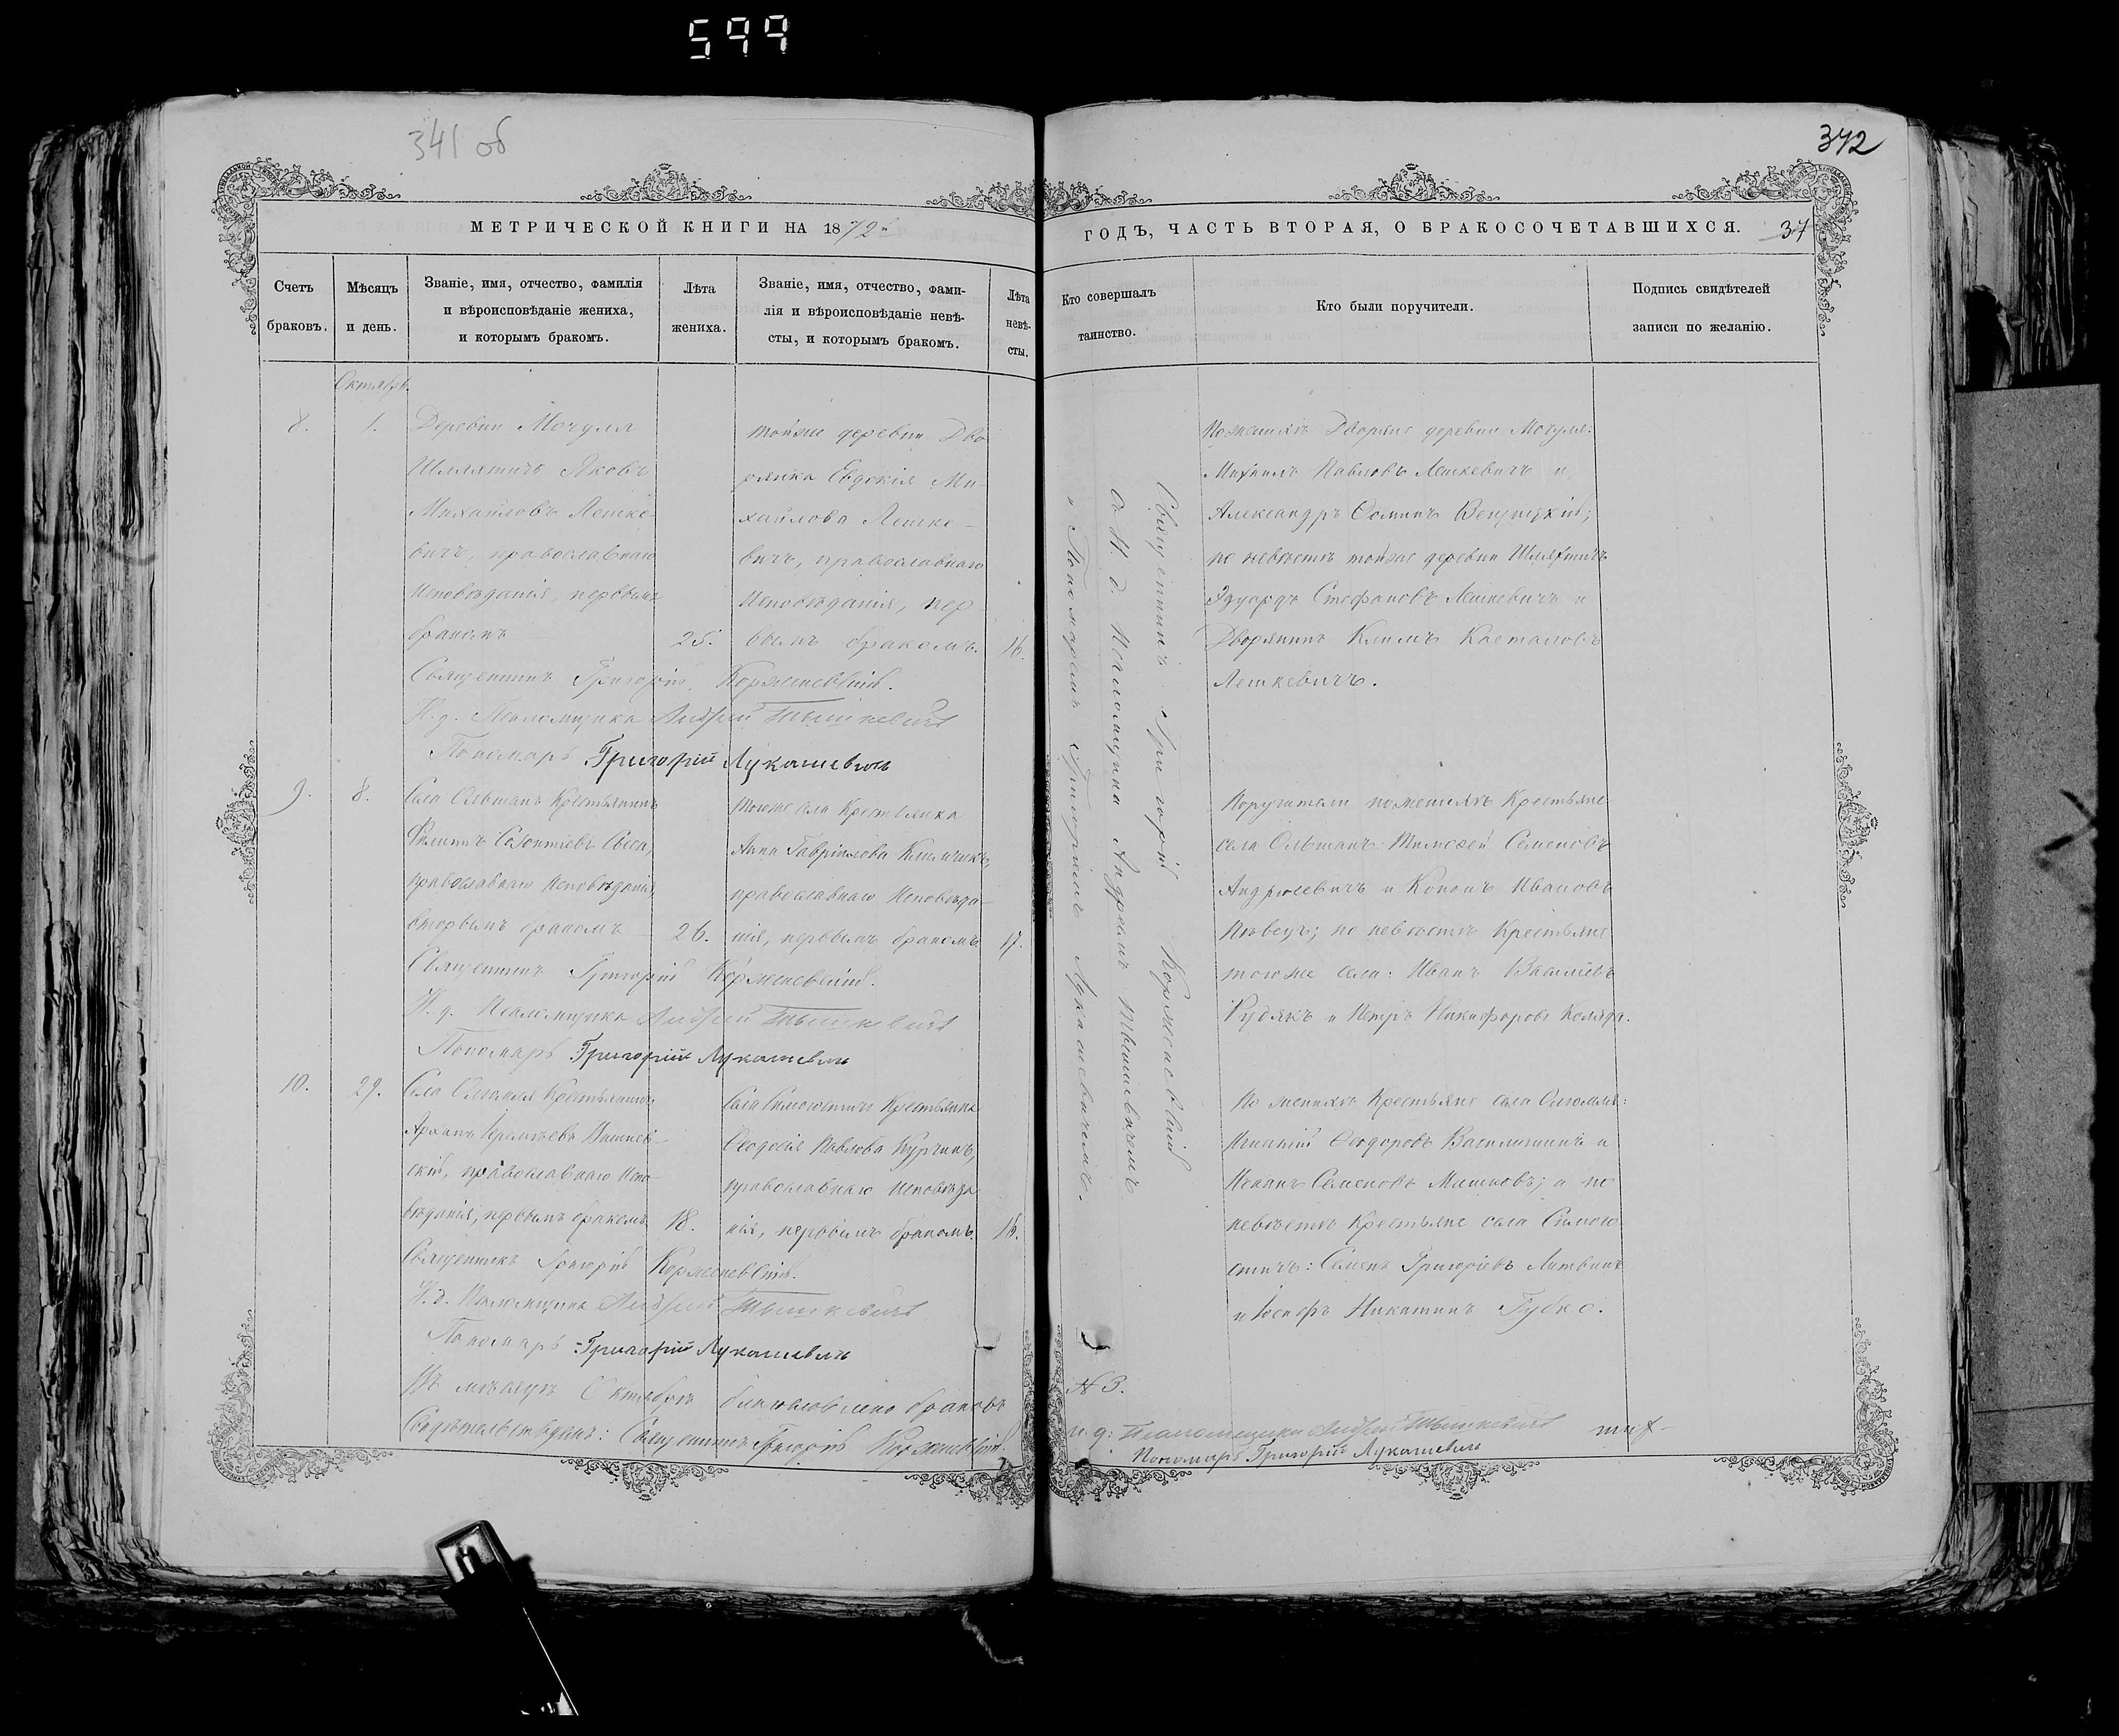 599
341 об
342
МЕТРИЧЕСКОЙ КНИГИ НА 1872й
ГОДЪ, ЧАСТЬ ВТОРАЯ, О БРАКОСОЧЕТАВШИХСЯ.
37
Счетъ браковъ.
Мѣсяцъ и день.
Званіе, имя, отчество, фамилія
и вѣроисповѣданіе жениха,
и которымъ бракомъ.
Лѣта
жениха.
Званіе, имя, отчество, фами-
лія и вѣроисповѣданіе невѣ-
сты, и которымъ бракомъ.
Лѣта
невѣ-
сты.
Кто совершалъ
таинство.
Кто были поручители.
Подпись свидѣтелей
записи по желанію.
Октябрь
8.
1.
Деревни Мочуля
Шляхтичъ Яковъ
Михайловъ Лешке-
вичъ, православнаго
Исповѣданія, первымъ
бракомъ
25.
тойже деревни Дво
рянка Евдокія Ми-
хайлова Лешке-
вичъ, православнаго
Исповѣданія, пер-
вымъ бракомъ.
16.
Священникъ Григорій Корженевскій.
И. д. Псаломщика Андрей Тышкевичъ
Пономарь Григорій Лукашевичъ
По женихѣ Дворяне деревни Мочуля:
Михаилъ Павловъ Лешкевичъ и
Александръ Ѳоминъ
по невѣстѣ тойже деревни Шляхтичъ
Эдуардъ Стефановъ Лешкевичъ и
Дворянинъ Климъ
Лешкевичъ.
Священникъ Григорій Корженевскій
съ И. д. Псаломщика Андреемъ Тышкевичемъ
и Пономаремъ Григоріемъ Лукашевичемъ.
9.
8.
Села Ольманъ Крестьянинъ
Филиппъ
православнаго Исповѣданія,
вторымъ бракомъ
26.
тогоже села Крестьянка
Анна Гавріилова
православнаго Исповѣда-
нія, первымъ бракомъ.
17.
Священникъ Григорій Корженевскій.
И. д. Псаломщика Андрей Тышкевичъ
Пономарь Григорій Лукашевичъ
Поручители по женихѣ Крестьяне
села Ольманъ: Тимоѳей Семеновъ
Андрюсевичъ и Кононъ Ивановъ
Пѣвецъ; по невѣстѣ Крестьяне
тогоже села: Иванъ Василіевъ
Кудякъ и Петръ Никифоровъ Коляда.
10.
29.
Села Крестьянинъ
Архипъ
скій, православнаго Испо-
вѣданія, первымъ бракомъ
18.
Села Крестьянка
Ѳеодосія Павлова
православнаго Исповѣда
нія, первымъ бракомъ.
16.
Священникъ Григорій Корженевскій.
И. д. Псаломщика Андрей Тышкевичъ
Пономарь Григорій Лукашевичъ
По женихѣ Крестьяне села
Игнатій Ѳеодоровъ Василишинъ и
Семеновъ Мишковъ; а по
невѣстѣ Крестьяне села Симоно
Семенъ Григоріевъ Литвинъ
и Іосифъ Никитинъ Губко.
Въ мѣсяцѣ Октябрѣ благословлено браковъ
№ 3.
Священникъ Григорій Корженевскій.
и. д. Псаломщика Андрей Тышкевичъ
Пономарь Григорій Лукашевичъ